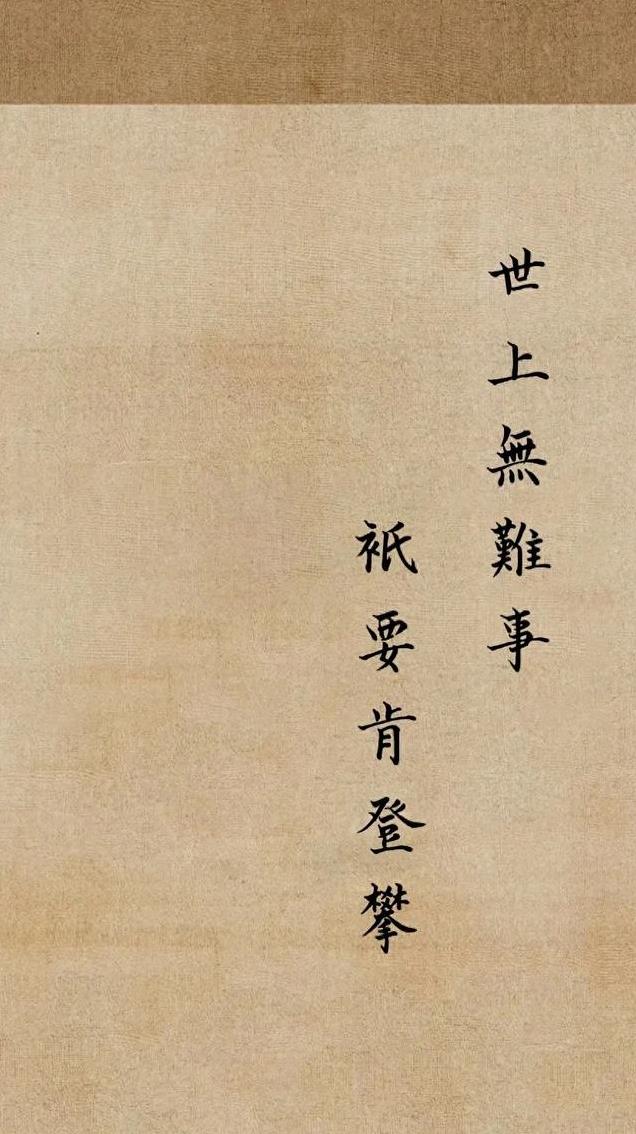 世上無難事
衹要肯登攀